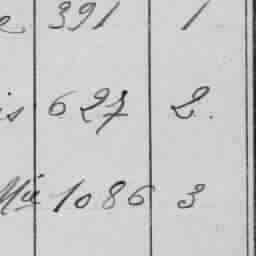 e 391 1
is 627 2.
Mie 1086 3